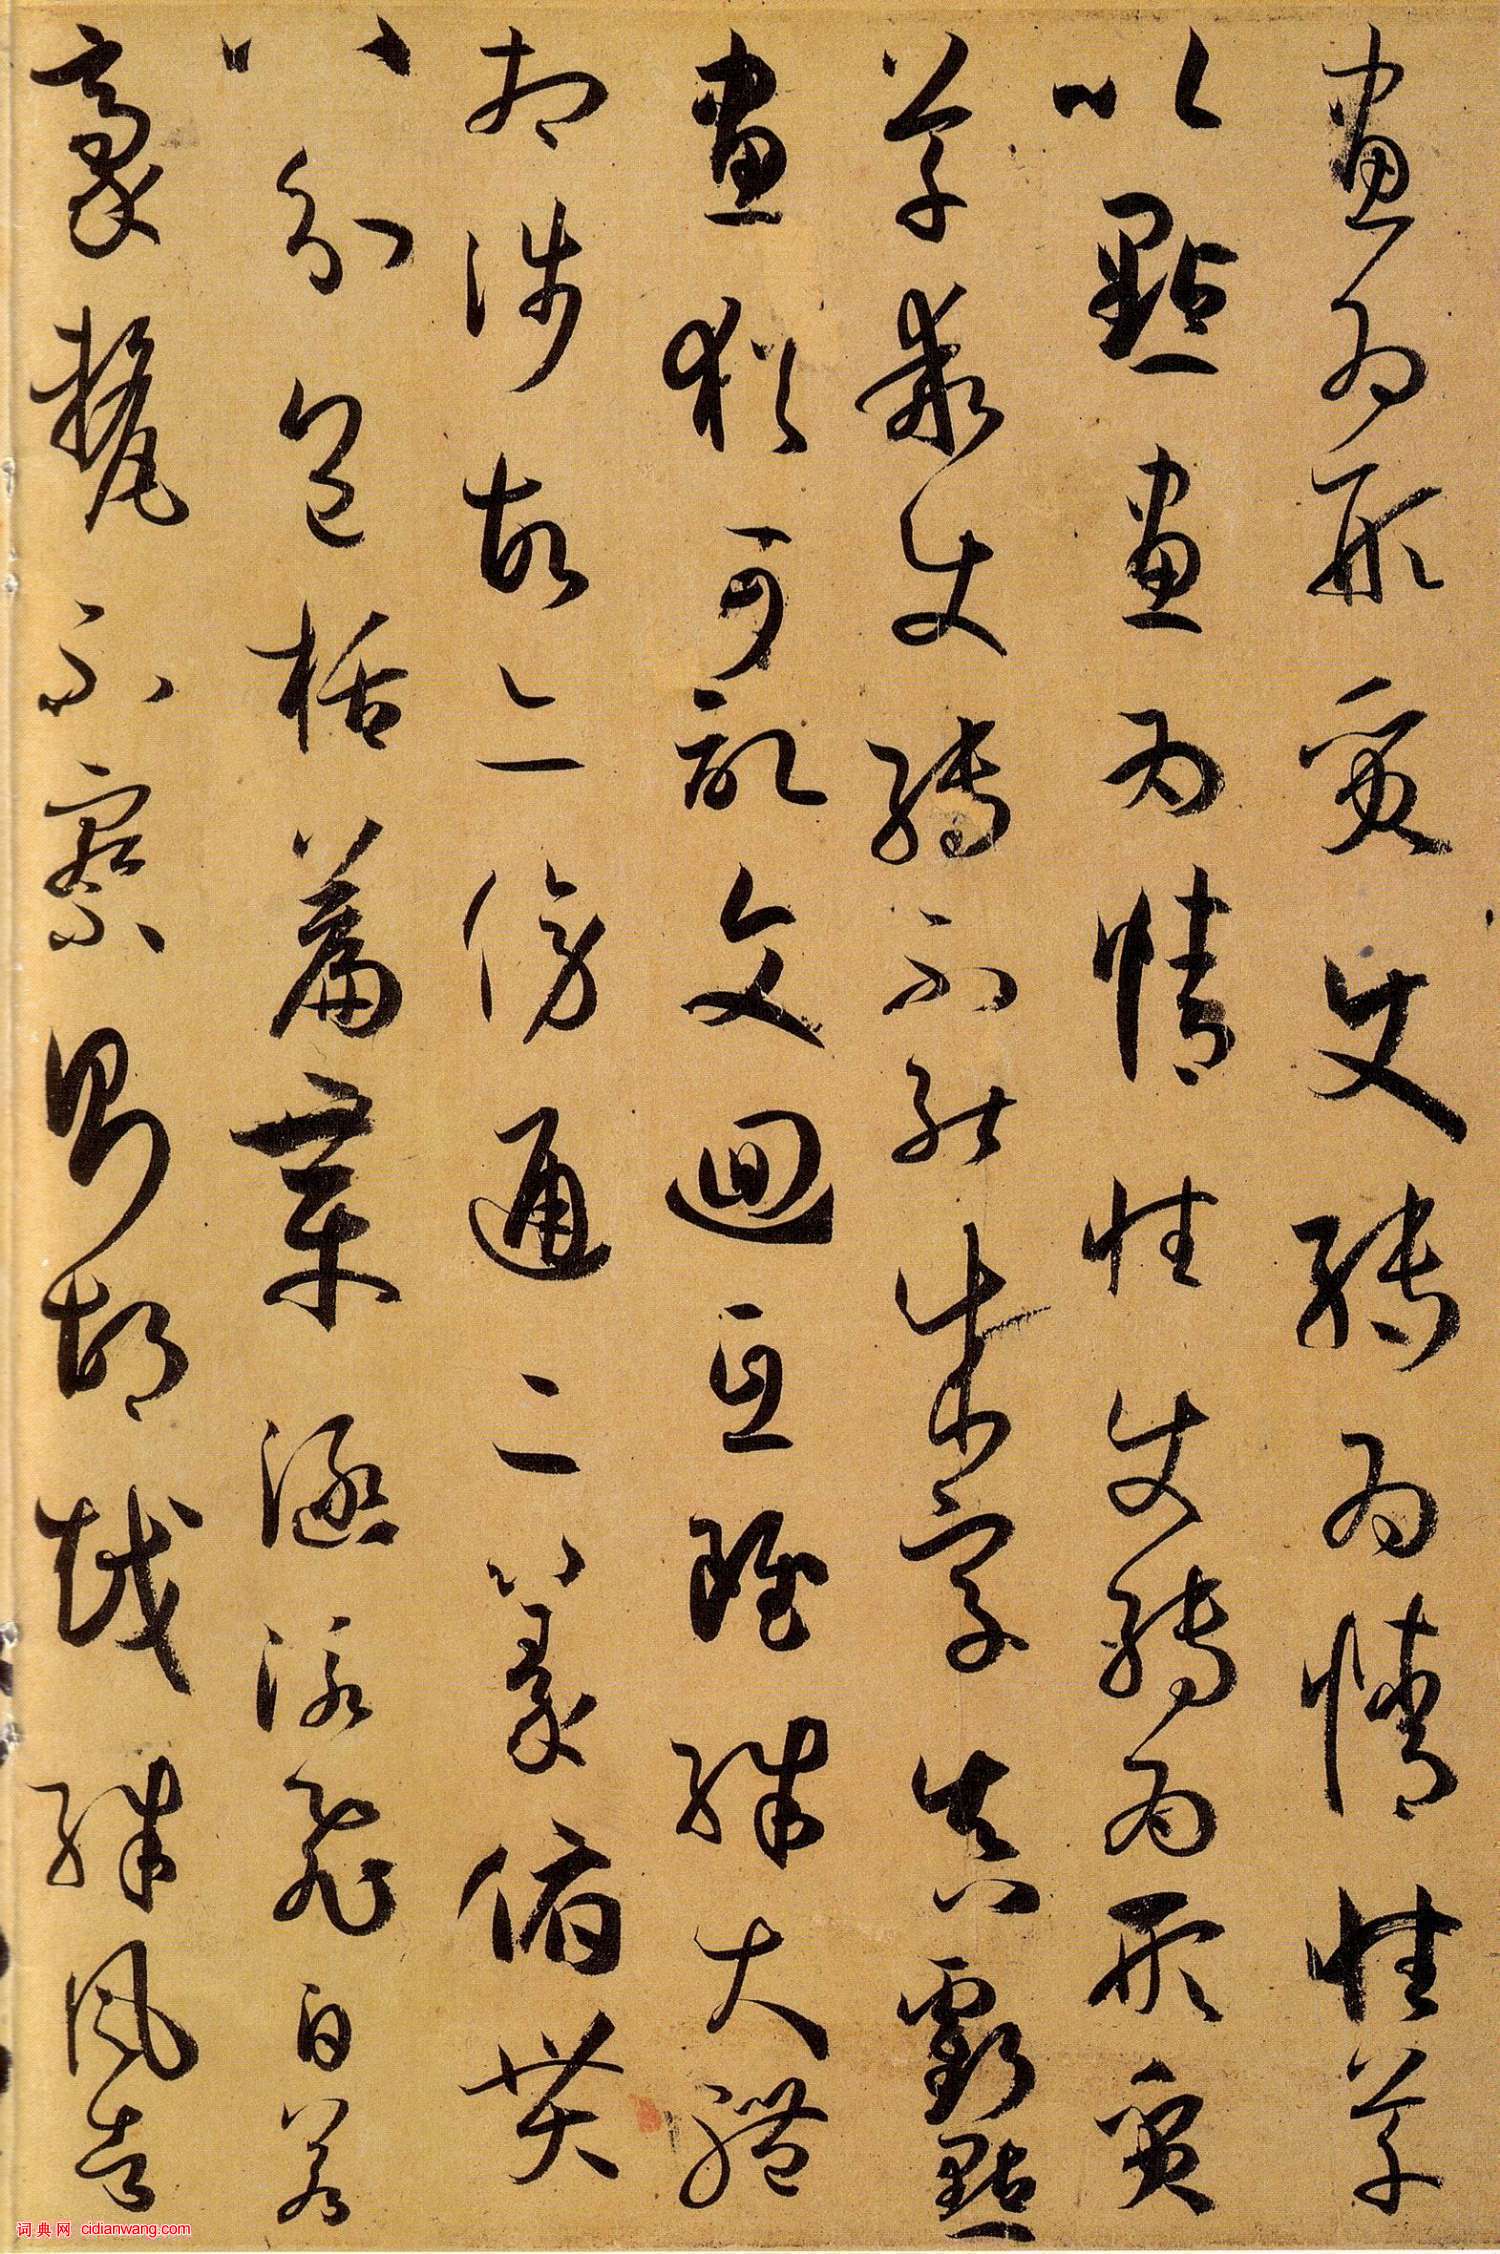 畫為形質使轉為情性草
以點畫為情性使轉為形質
草乖使轉不能成字真虧點
畫猶可記文迴互雖殊大體
相涉故亦傍通二篆俯貫
八分包括篇章涵泳飛白若
豪氂不察則胡越殊風者
词典网 cidianwang.com